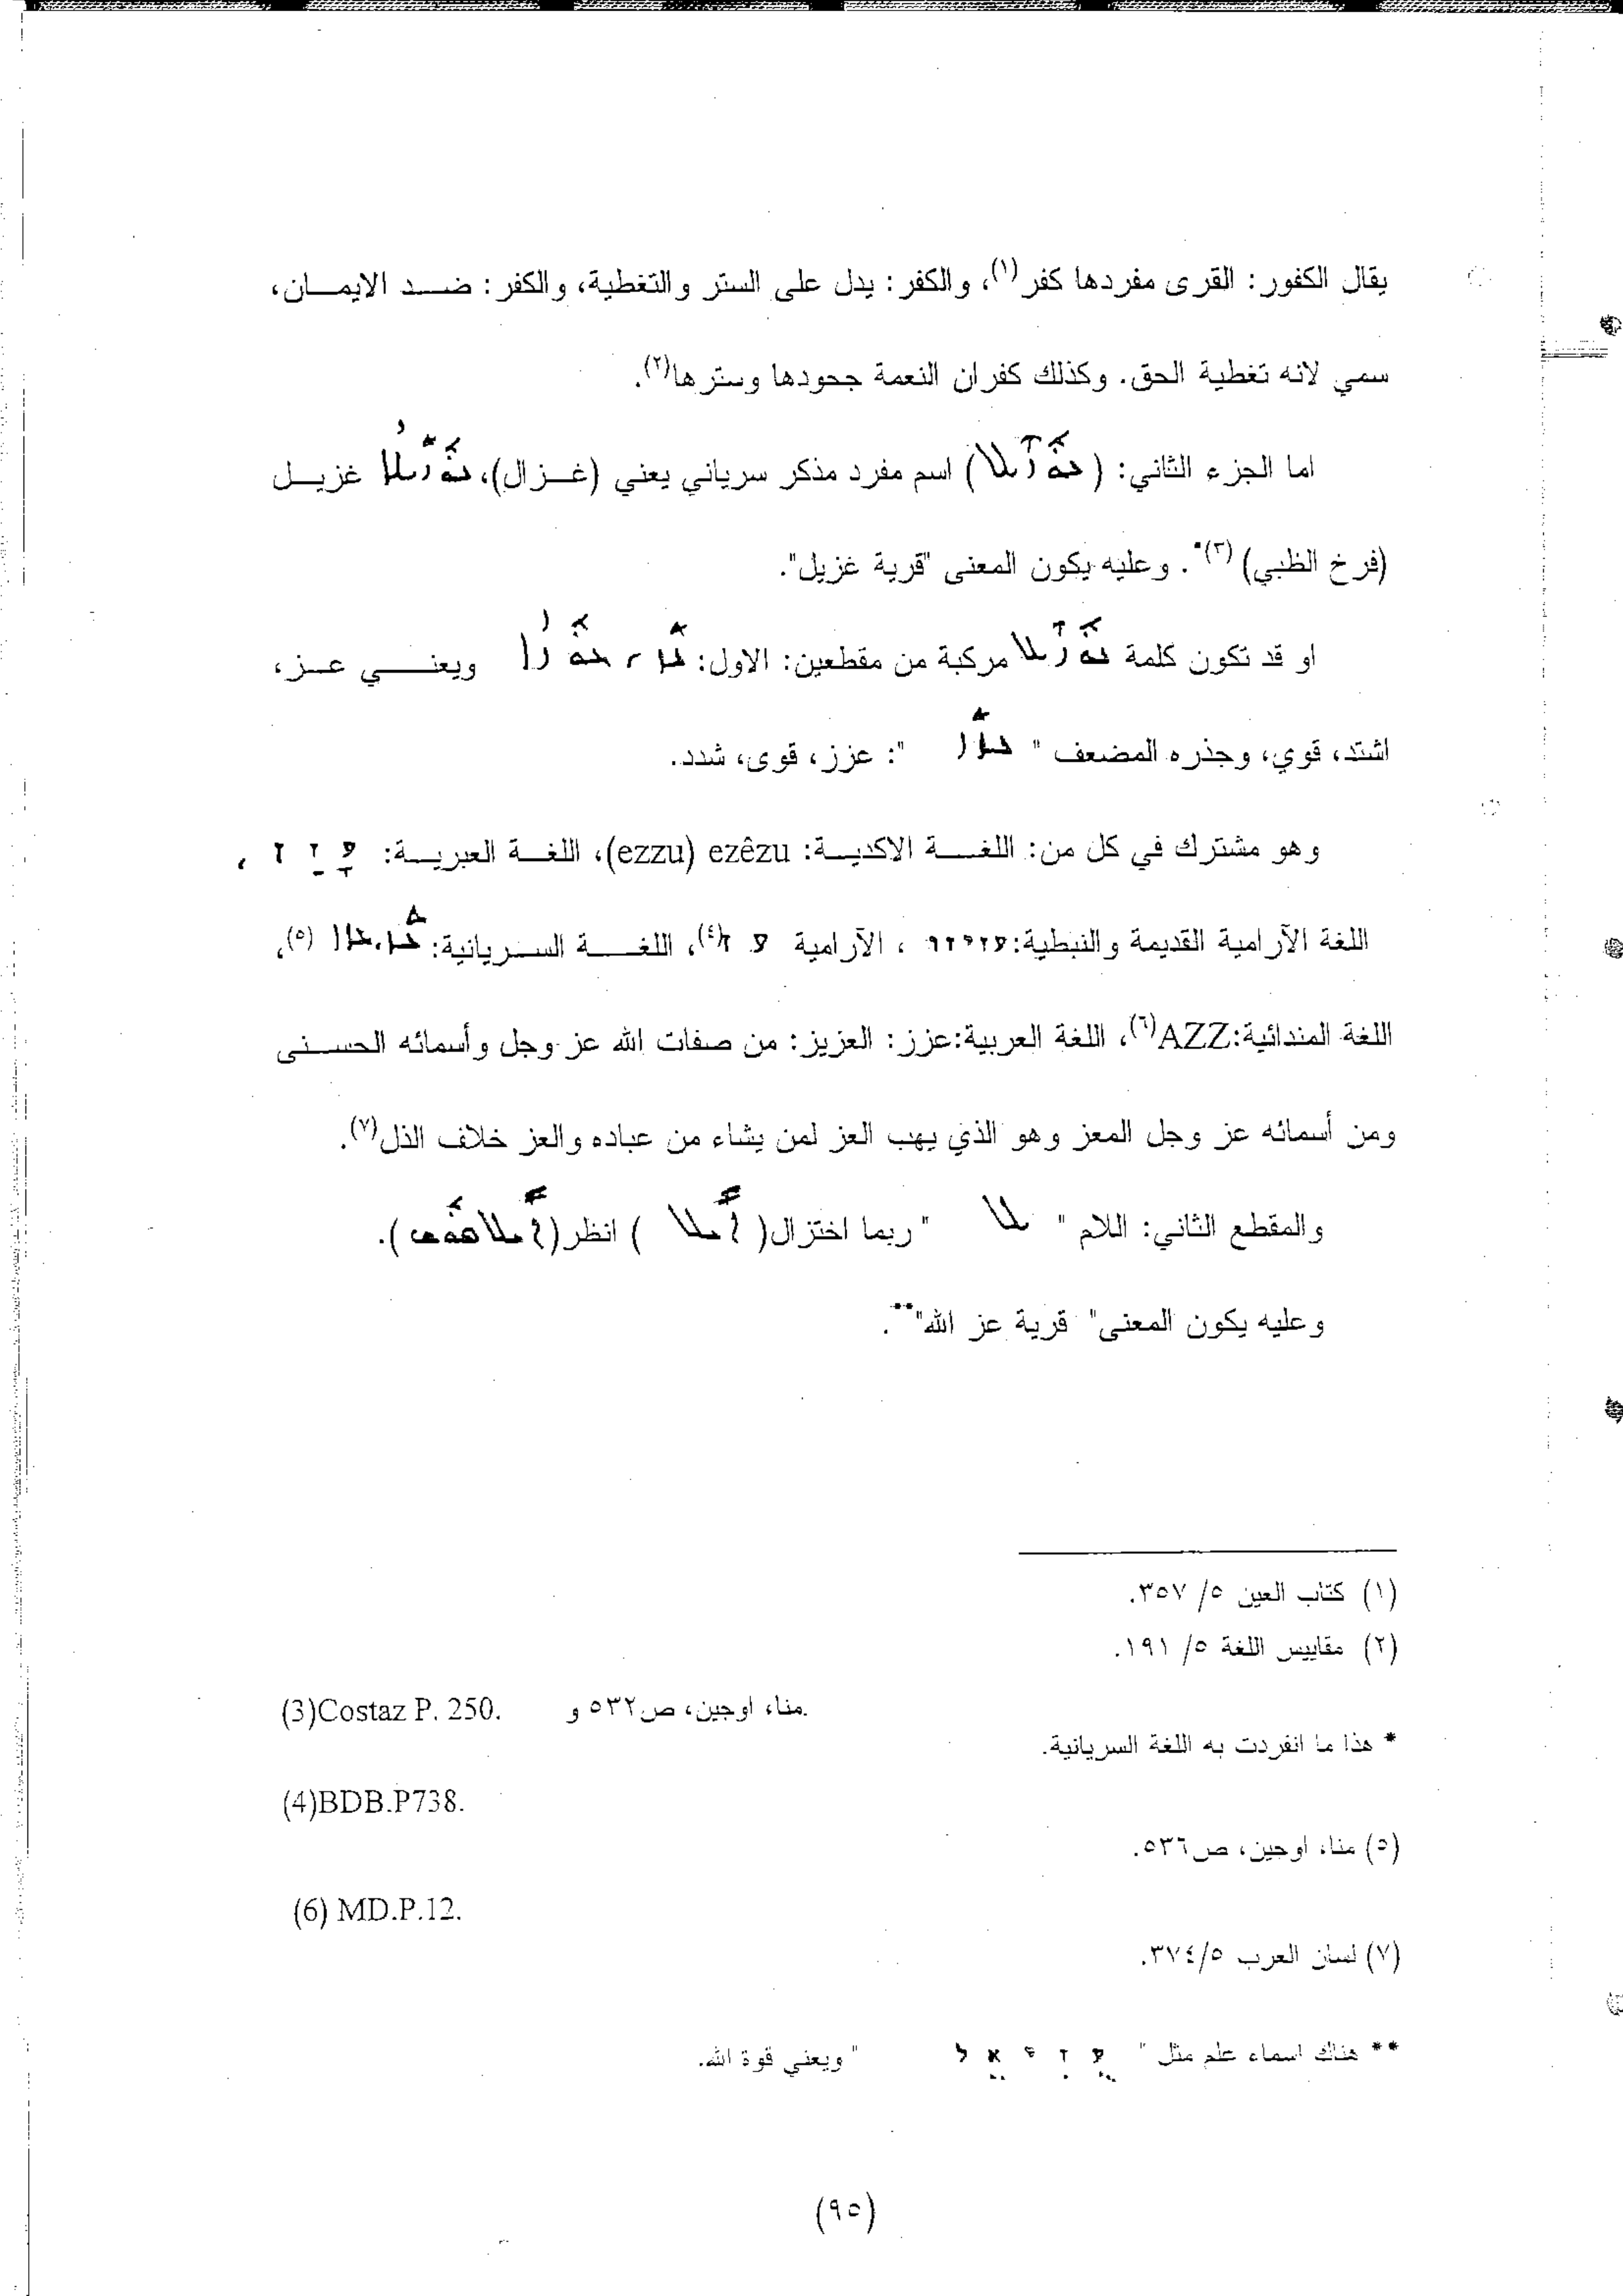 يقال الكفور: القرى مفردها كفر(١)، والكفر: يدل على الستر والتغطية، والكفر: ضد الايمان،
سمي لانه تغطية الحق. وكذلك كفران النعمة جحودها وسترها(٢).
اما الجزء الثاني: ( ) اسم مفرد مذكر سرياني يعني (غزال)، غزيل
(فرخ الظبي) (٣)*. وعليه يكون المعنى "قرية غزيل".
او قد تكون كلمة مركبة من مقطعين: الاول: ويعني عز،
اشتد، قوي، وجذره المضعف " ": عزز، قوى، شدد.
وهو مشترك في كل من: اللغة الاكدية: ezêzu (ezzu)، اللغة العبرية: ،
اللغة الآرامية القديمة والنبطية: ، الآرامية (٤)، اللغة السريانية: (٥)،
اللغة المندائية:AZZ(٦)، اللغة العربية:عزز: العزيز: من صفات الله عز وجل وأسمائه الحسنى
ومن أسمائه عز وجل المعز وهو الذي يهب العز لمن يشاء من عباده والعز خلاف الذل(٧).
والمقطع الثاني: اللام " " ربما اختزال( ) انظر( ).
وعليه يكون المعنى" قرية عز الله"**.
(١) كتاب العين ٥/ ٣٥٧.
(٢) مقاييس اللغة ٥/ ١٩١.
(3)Costaz P. 250. منا، اوجين، ص٥٣٢ و.
* هذا ما انفردت به اللغة السريانية.
(4)BDB.P738.
(٥) منا، اوجين، ص٥٣٦.
(6) MD.P.12.
(٧) لسان العرب ٥/٣٧٤.
** هناك اسماء علم مثل " " ويعني قوة الله.
(٩٥)